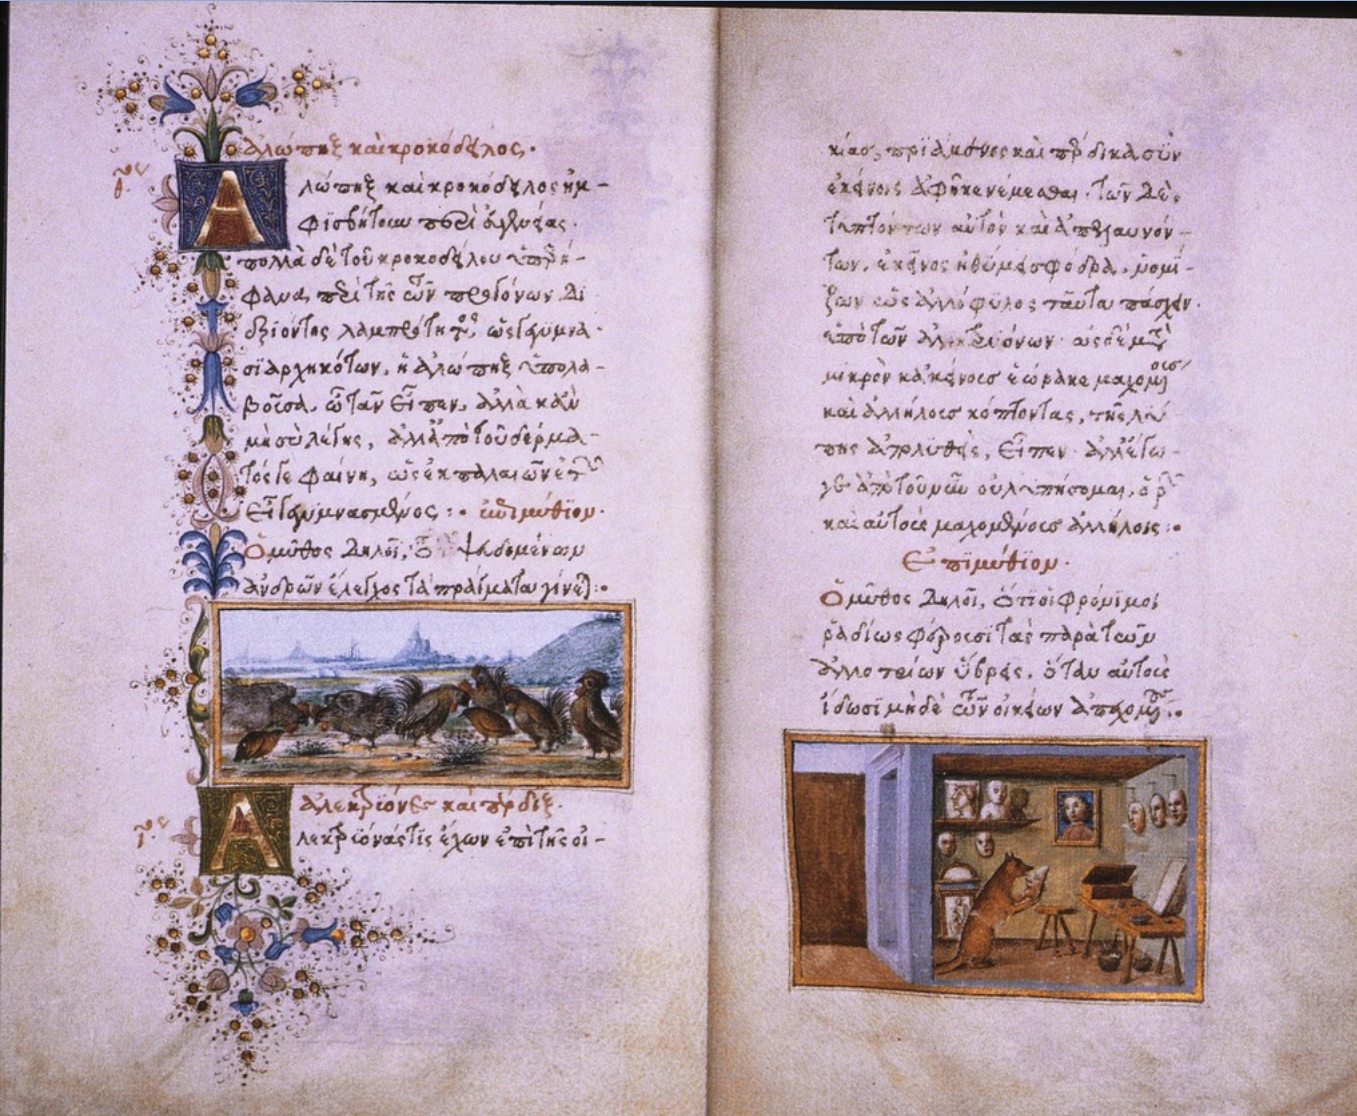 Ἀλώπηξ καὶ κροκόδειλος.
Ἀλώπηξ καὶ κροκόδειλος ἠμ-
φισβήτουν περὶ εὐγενείας.
πολλὰ δὲ τοῦ κροκοδείλου
περὶ τῆς τῶν προγόνων
λαμπρότητος, ὡς γεγυμνα-
σιαρχηκότων, ἡ ἀλώπηξ ὑπολα-
βοῦσα, ὦ τᾶν εἶπεν, ἀλλὰ κἂν
μὴ σὺ λέγης, ἀλλ' ἀπὸ τοῦ δέρμα-
τός γε φαίνη, ὡς ἐκ παλαιῶν ἐτῶν
εἶ γεγυμνασμένος:· ἐπιμύθιον.
Ὁ μῦθος δηλοῖ, ὅτι ψευδομένων
ἀνδρῶν ἔλεγχος τὰ πράγματα γίνεται:·
Ἀλεκτρυόνες καὶ πέρδιξ.
Ἀλεκτρυόνας τὶς ἔχων ἐπὶ τῆς οἰ-
κίας, πριάμενος καὶ πέρδικα σὺν
ἐκείνοις ἀφῆκε νέμεσθαι. τῶν δὲ
τυπτόντων αὐτὸν καὶ ἀπελαυνόν-
των, ἐκεῖνος ἠθύμει σφόδρα, νομί-
ζων ὡς ἀλλόφυλος ταῦτα πάσχειν
ὑπὸ τῶν ἀλεκτρυόνων. ὡς δὲ μετὰ
μικρὸν κἀκείνους ἑώρακε μαχομένους
καὶ ἀλλήλους κόπτοντας, τῆς λύ-
πης ἀπολυθεὶς, εἶπεν. ἀλλ' ἔγω-
γε ἀπὸ τοῦ νῦν οὐ λυπήσομαι, ὁρῶν
καὶ αὐτοὺς μαχομένους ἀλλήλοις:·
Ἐπιμύθιον.
Ὁ μῦθος δηλοῖ, ὅτι οἱ φρόνιμοι
ῥαδίως φέρουσι τὰς παρὰ τῶν
ἀλλοτρίων ὕβρεις, ὅταν αὐτοὺς
ἴδωσι μηδὲ τῶν οἰκείων ἀπεχομένους:·